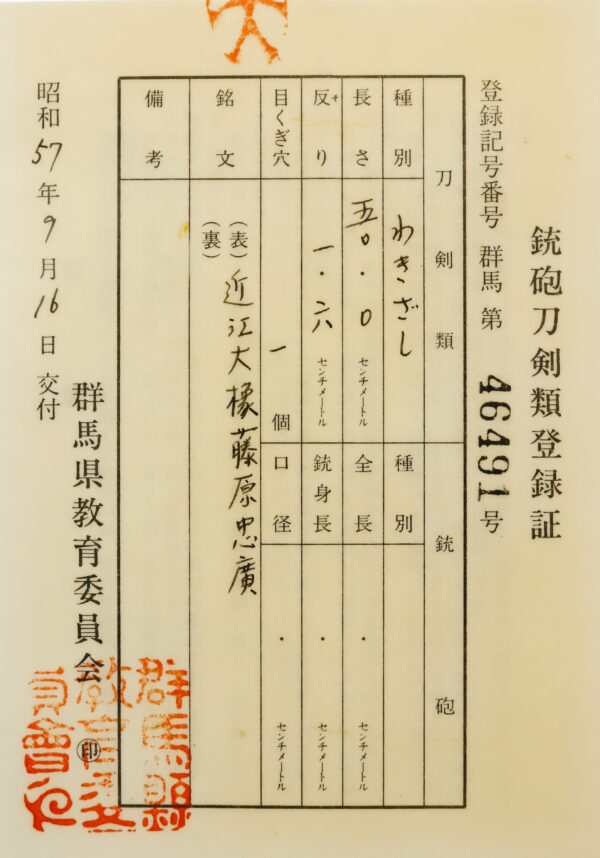 銃砲刀剣類登録証
登録記号番号 群馬 第 46491 号
刀剣類
種別 わきざし
長さ 五〇.〇 センチメートル
反り 一.六 センチメートル
そ
目くぎ穴 一 個
銘文 (表) 近江大掾藤原忠廣
(裏)
備考
銃砲
種別
全長 . センチメートル
銃身長 . センチメートル
口径 . センチメートル
昭和57年9月16日 交付
群馬県教育委員会 ㊞
群馬縣
教育委
員會之